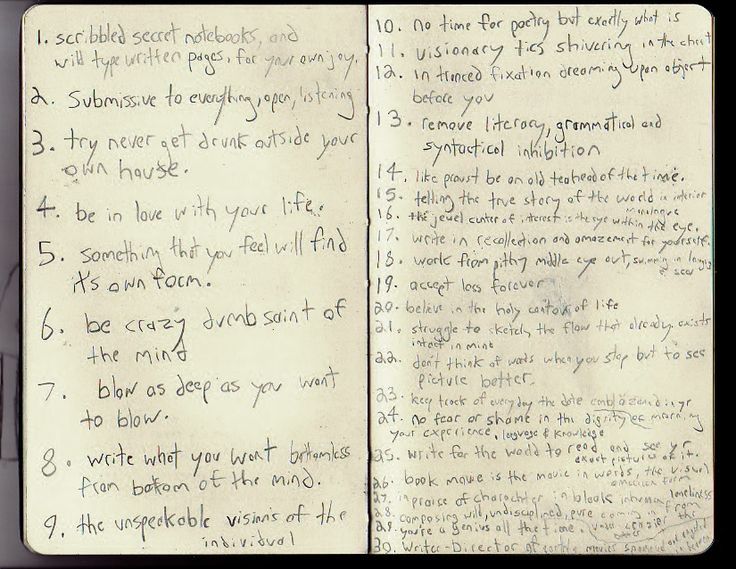 1. scribbled secret notebooks, and
will type written pages, for your own joy.
2. Submissive to everything, open, listening
3. try never get drunk outside your
own house.
4. be in love with your life.
5. something that you feel will find
it's own form.
6. be crazy dumb saint of
the mind
7. blow as deep as you want
to blow.
8. write what you want bottomless
from bottom of the mind.
9. the unspeakable visions of the
individual
10. no time for poetry but exactly what is
11. visionary tics shivering in the chest
12. in tranced fixation dreaming upon object
before you
13. remove literary, grammatical and
syntactical inhibition
14. like proust be an old teahead of the time.
15. telling the true story of the world in interior
monologue
16. the jewel center of interest is the eye within the eye.
17. write in recollection and amazement for yourself.
18. work from pithy middle eye out, swimming in
sea
19. accept loss forever
20. believe in the holy contour of life
21. struggle to sketch the flow that already exists
intact in mind
22. don't think of words when you stop but to see
picture better.
23. keep track of everyday the date emblazoned in yr
24. no fear or shame in the dignity of
your experience, language & knowledge
25. write for the world to read and see yr
exact picture of it.
26. book movie is the movie in words, the visual
american form
27. in praise of character in bleak inhuman loneliness
28. composing wild, undisciplined, pure coming in from
29. you're a genius all the time. the
30. Writer-Director of earthly movies